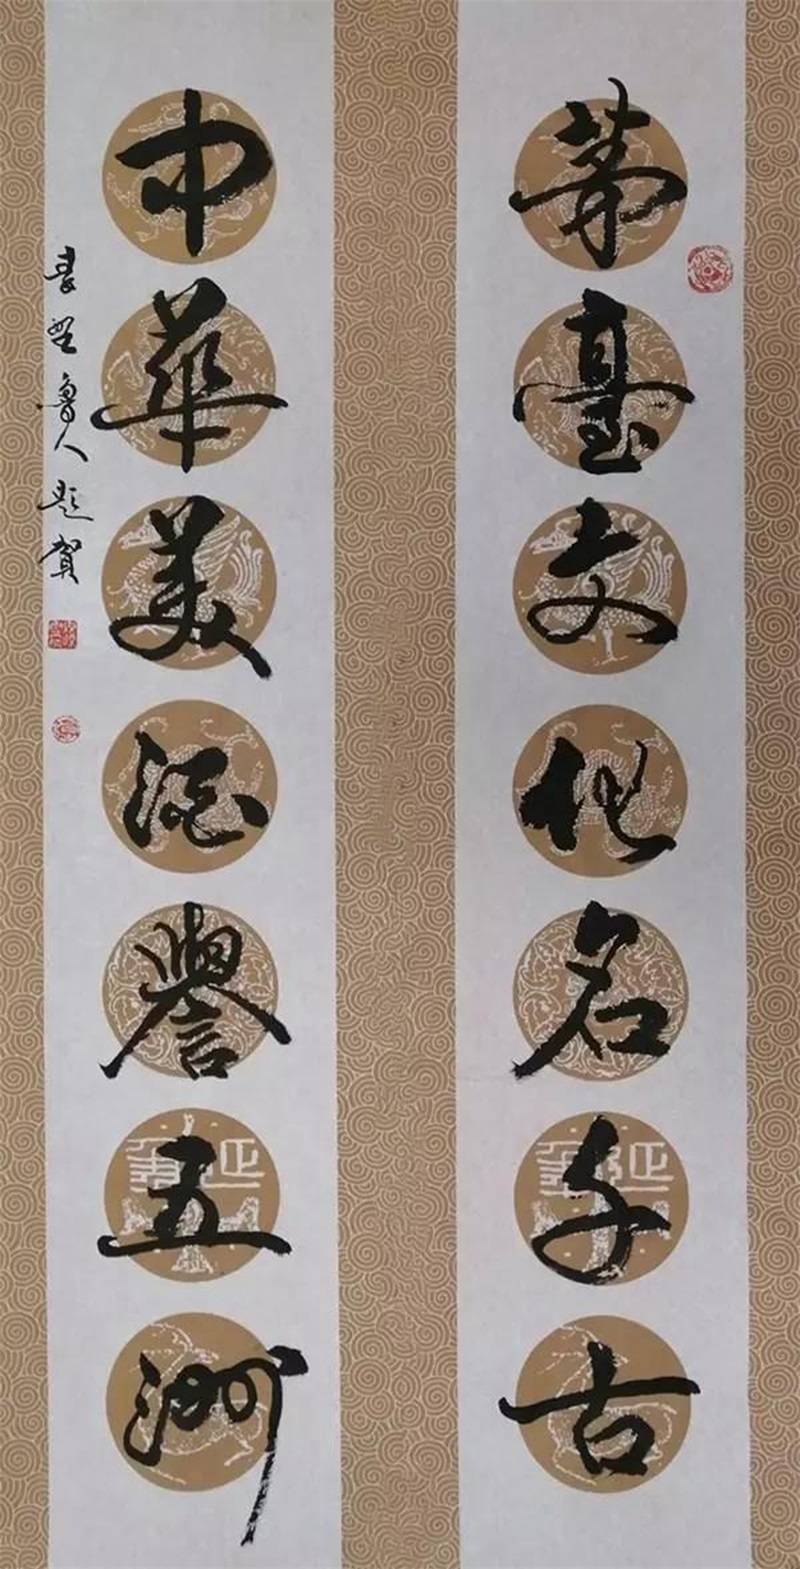 茅臺文化名千古
中華美酒譽五洲
魯人題賀